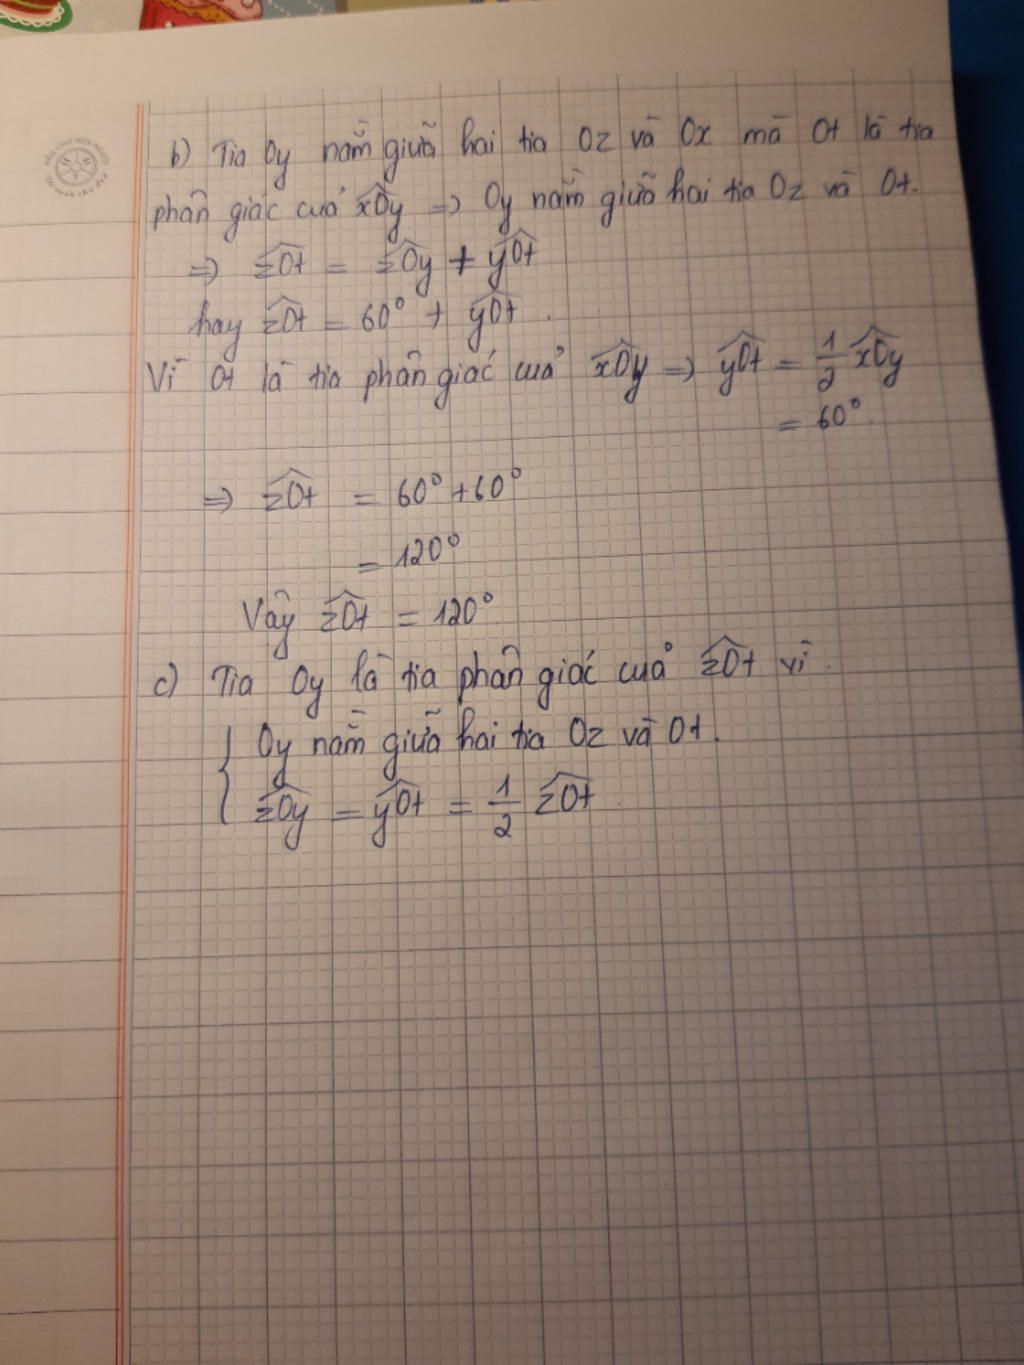 b) Tia Oy nằm giữa hai tia Oz và Ox mà Ot là tia
phân giác của xOy => Oy nằm giữa hai tia Oz và Ot.
=> zOt = zOy + yOt
hay zOt = 60° + yOt.
Vì Ot là tia phân giác của xOy => yOt = 1/2 xOy
= 60°.
=> zOt = 60° + 60°
= 120°
Vậy zOt = 120°
c) Tia Oy là tia phân giác của zOt vì.
{ Oy nằm giữa hai tia Oz và Ot.
zOy = yOt = 1/2 zOt.